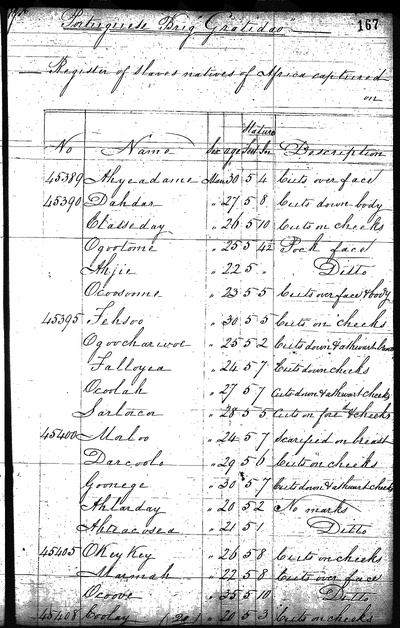 Portuguese Brig Gratidao
167
Register of Slaves natives of Africa captured
on
Stature
No Name Sex age Feet In Description
45389 Ahyeadame Man 30 5 4 Cuts over face
45390 Dahdar " 27 5 8 Cuts down body
" 26 5 10 Cuts on cheeks
Ogootome " 25 5 4½ Pock face
Ahjie " 22 5 " Ditto
Ocoosonne " 23 5 5 Cuts over face & body
45395 Fehsoo " 30 5 5 Cuts on cheeks
Ogoochariwot " 25 5 2 Cuts down & athwart
Falloyea " 24 5 7 Cuts down cheeks
Ocoolah " 27 5 7 Cuts down & athwart cheeks
Sarlocor " 28 5 5 Cuts on fore^d & cheeks
45400 Morloo " 24 5 7 Scarified on breast
Darcoolo " 29 5 6 Cuts on cheeks
Goonege " 30 5 7 Cuts down & athwart cheeks
Ahlarday " 20 5 2 No marks
" 21 5 1 Ditto
45405 Okeykey " 26 5 8 Cuts on cheeks
Marmah " 22 5 8 Cuts over face
Ocoove " 35 5 10 Ditto
45408 Coolay (20) " 20 5 3 Cuts on cheeks